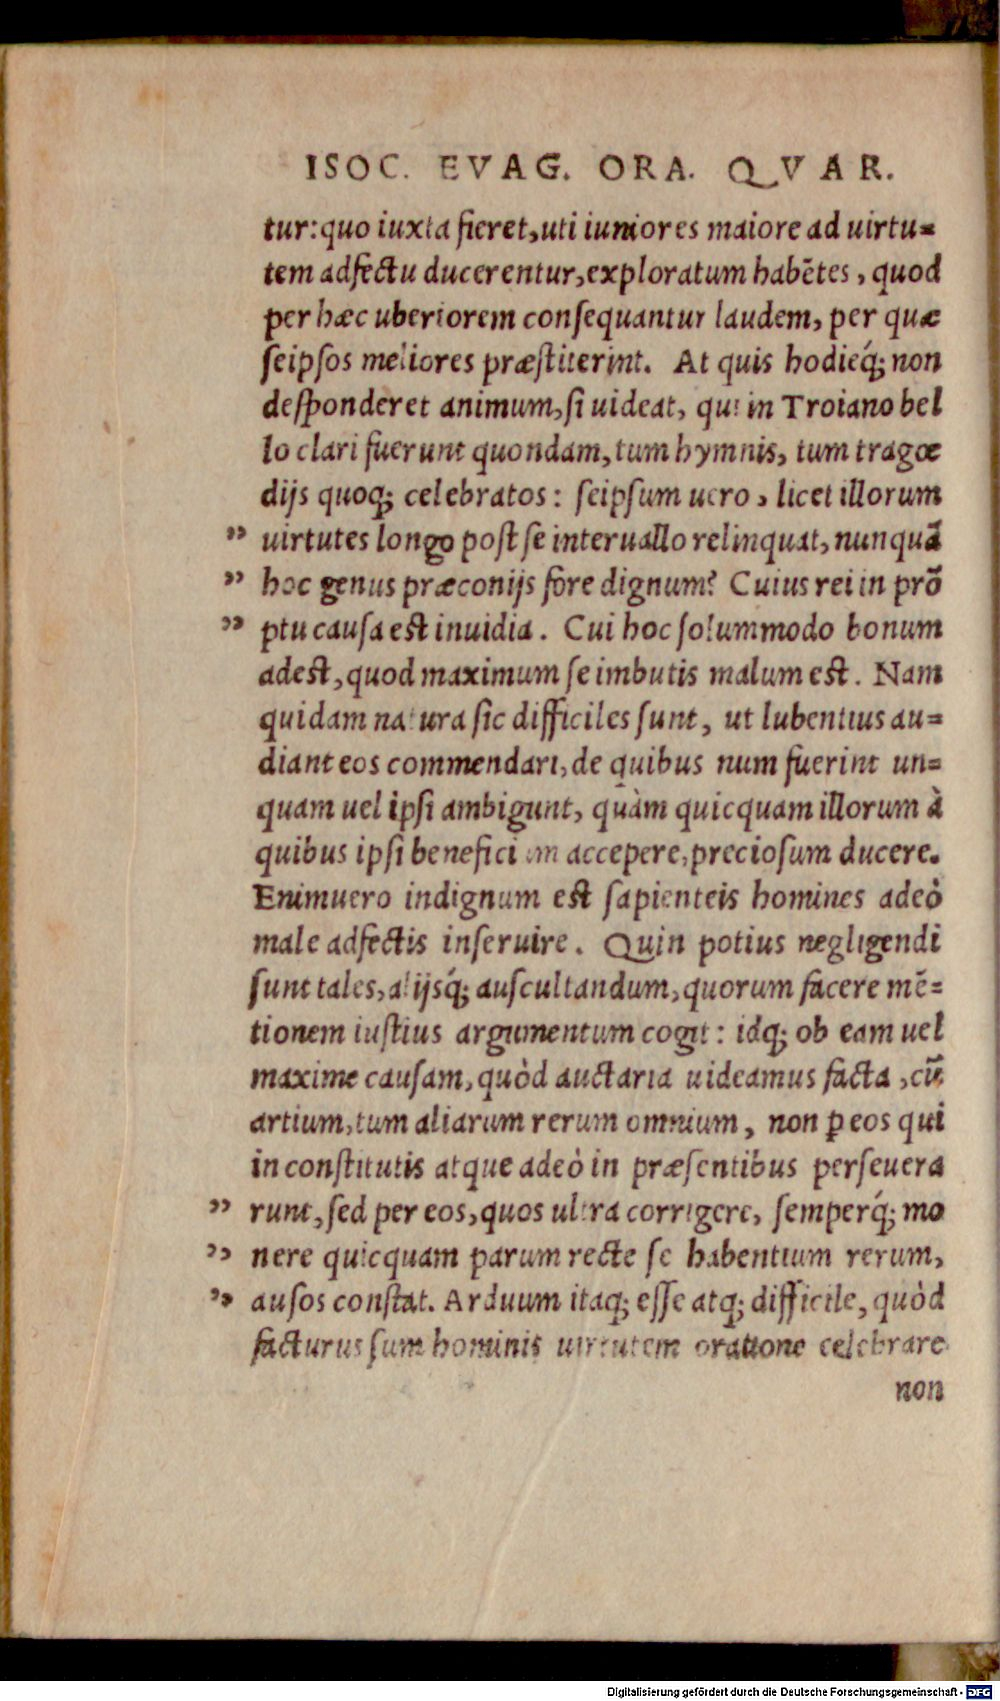 ISOC. EVAG. ORA. QVAR.
tur: quo iuxta fieret, uti iuniores maiore ad uirtu=
tem adfectu ducerentur, exploratum habẽtes, quod
per hæc uberiorem consequantur laudem, per quæ
seipsos meliores præstiterint. At quis hodieq́; non
desponderet animum, si uideat, qui in Troiano bel
lo clari fuerunt quondam, tum hymnis, tum tragœ
dijs quoq; celebratos: seipsum uero, licet illorum
” uirtutes longo post se interuallo relinquat, nunquã
” hoc genus præconijs fore dignum? Cuius rei in prõ
” ptu causa est inuidia. Cui hoc solummodo bonum
adest, quod maximum se imbutis malum est. Nam
quidam natura sic difficiles sunt, ut lubentius au=
diant eos commendari, de quibus num fuerint un=
quam uel ipsi ambigunt, quàm quicquam illorum à
quibus ipsi beneficium accepere, preciosum ducere.
Enimuero indignum est sapienteis homines adeò
male adfectis inseruire. Quin potius negligendi
sunt tales, alijsq́; auscultandum, quorum facere mẽ=
tionem iustius argumentum cogit: idq; ob eam uel
maxime causam, quòd auctaria uideamus facta, cũ
artium, tum aliarum rerum omnium, non ꝑ eos qui
in constitutis atque adeò in præsentibus perseuera
” runt, sed per eos, quos ultra corrigere, semperq́; mo
” nere quicquam parum recte se habentium rerum,
” ausos constat. Arduum itaq; esse atq; difficile, quòd
facturus sum hominis uirtutem oratione celebrare
non
Digitalisierung gefördert durch die Deutsche Forschungsgemeinschaft - DFG